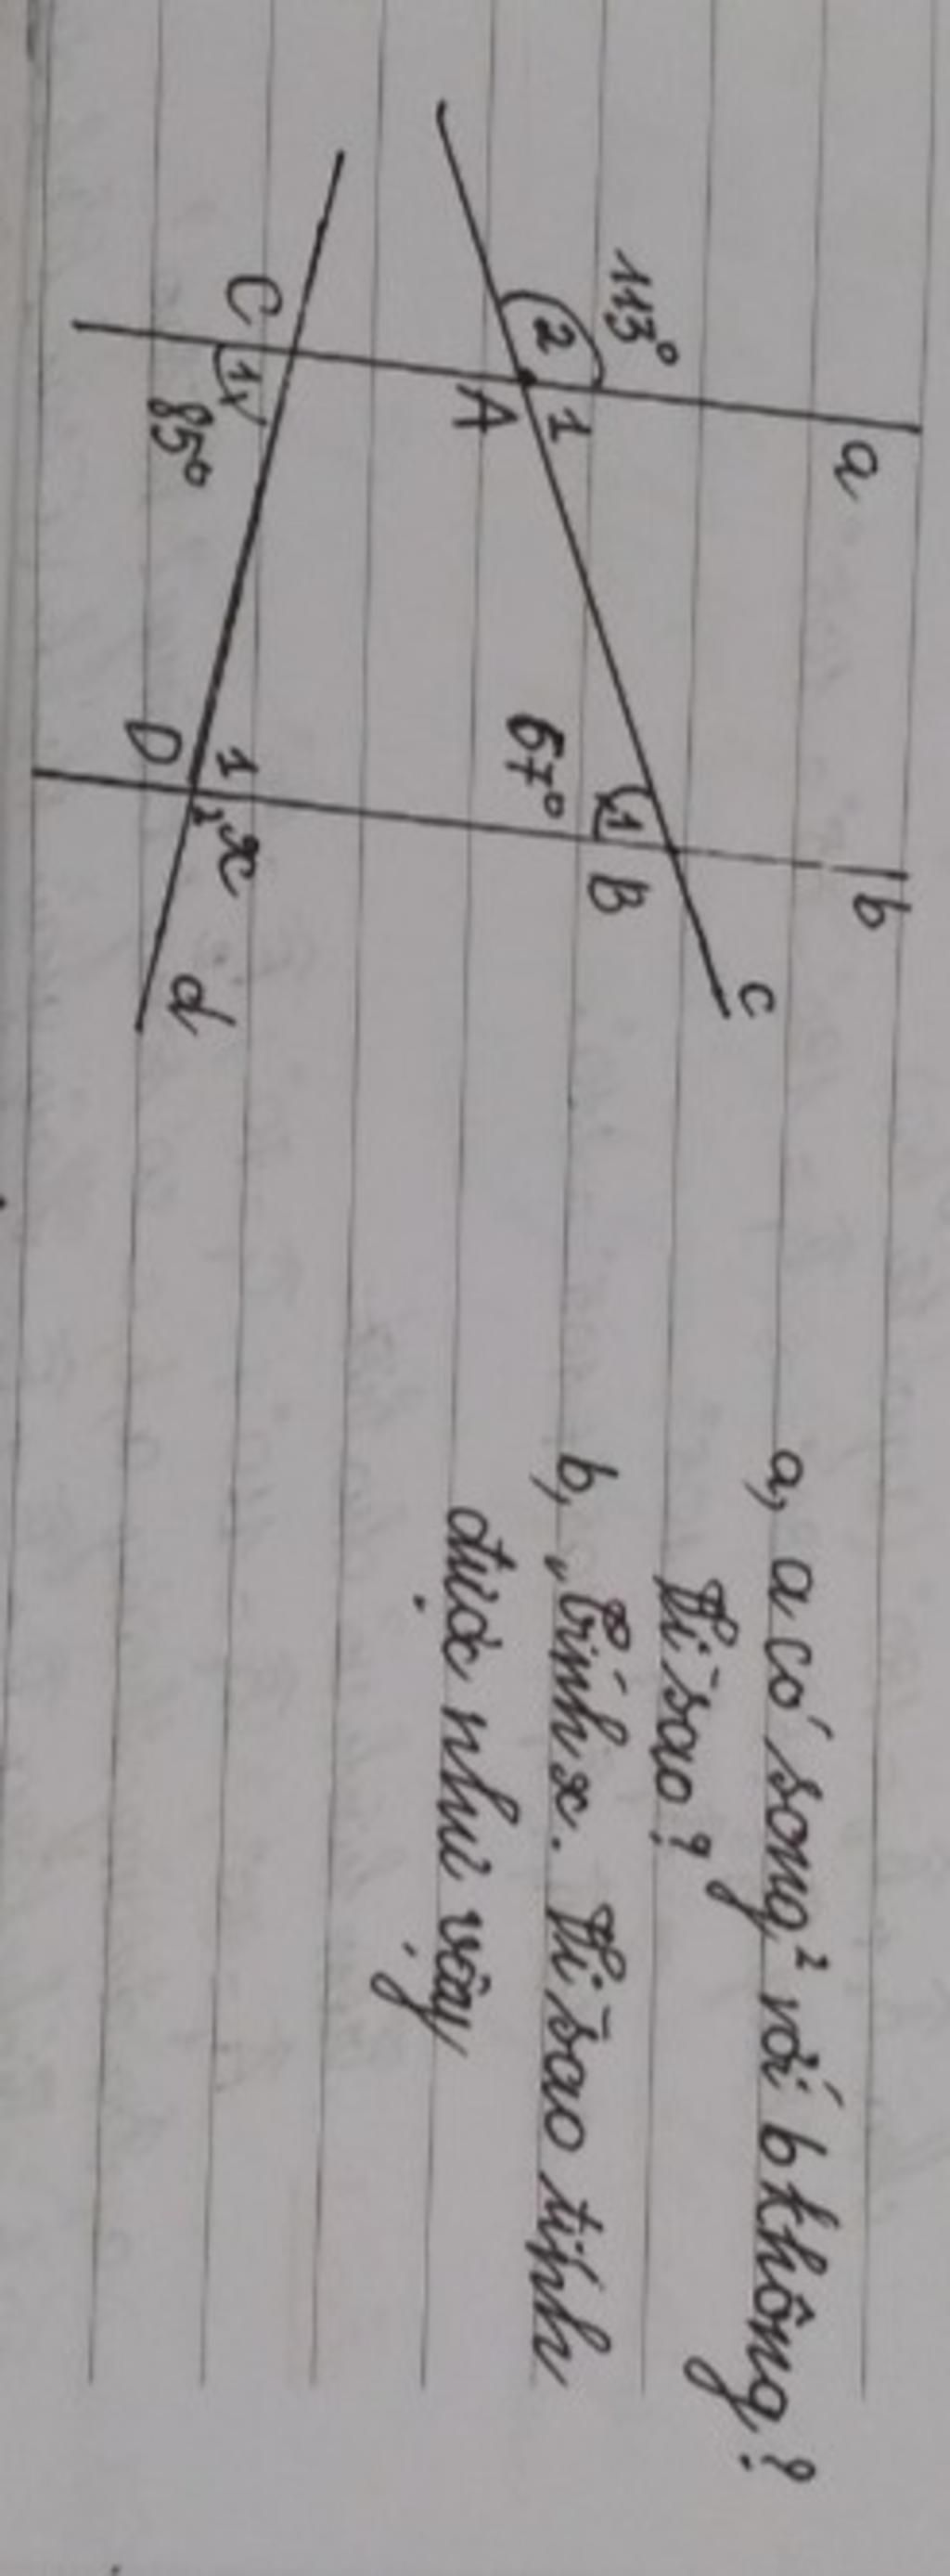 a, a có song² với b không?
Vì sao?
b, Tính x. Vì sao tính
được như vậy
a
113°
2
1
A
C
1
85°
b
c
1
B
67°
1
D
2
x
d